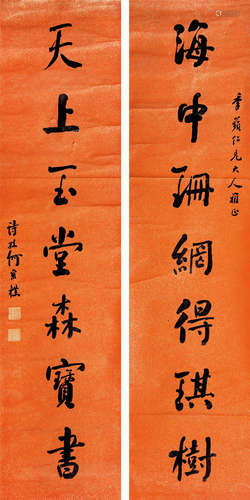 海中珊網得琪樹
季蘋仁兄大人雅正
天上玉堂森寶書
詩孫何維樸